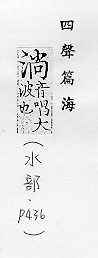 四聲篇海
淌音唱大
波也
(水部．p436)